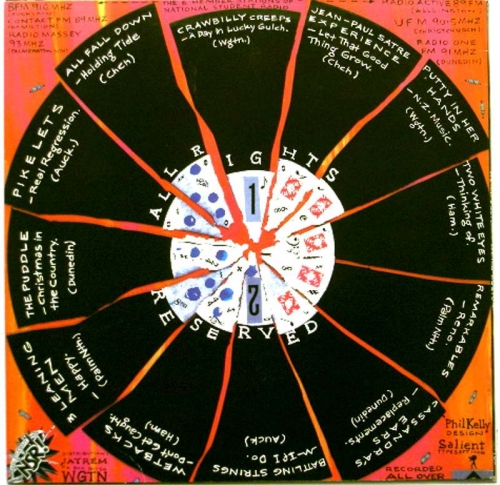 BFM 91.0 MHZ
CONTACT FM 89 MHZ
RADIO MASSEY
93 MHZ
NATIONAL STUDENT RADIO
RADIO ACTIVE
UFM 90.5 MHZ
RADIO ONE
FM 91 MHZ
(DUNEDIN)
ALL FALL DOWN
-Holding Tide
(Chch)
CRAWBILLY CREEPS
-A Day in Lucky Gulch.
(Wgtn.)
JEAN-PAUL SATRE
EXPERIENCE
-Let That Good
Thing Grow.
(Chch)
PUTTY IN HER
HANDS
-N.Z. Music.
(Wgtn.)
TWO WHITE EYES
-Thinking of
(Ham.)
REMARKABLES
-Reno
(Palm Nth.)
CASSANDRA'S
EARS
-Replacements.
(Dunedin)
BATTLING STRINGS
-If I Do.
(Auck)
WETBACKS
-Don't Get Caught.
(Ham)
LEANING
MEN
-Happy.
(Palm Nth.)
THE PUDDLE
-christmas in
the Country.
(Dunedin)
PIKELETS
-Real Regression.
(Auck.)
ALL RIGHTS
RESERVED
1
2
JAYREM
WGTN
Phil Kelly
DESIGN
Salient
TYPESETTING
RECORDED
ALL OVER